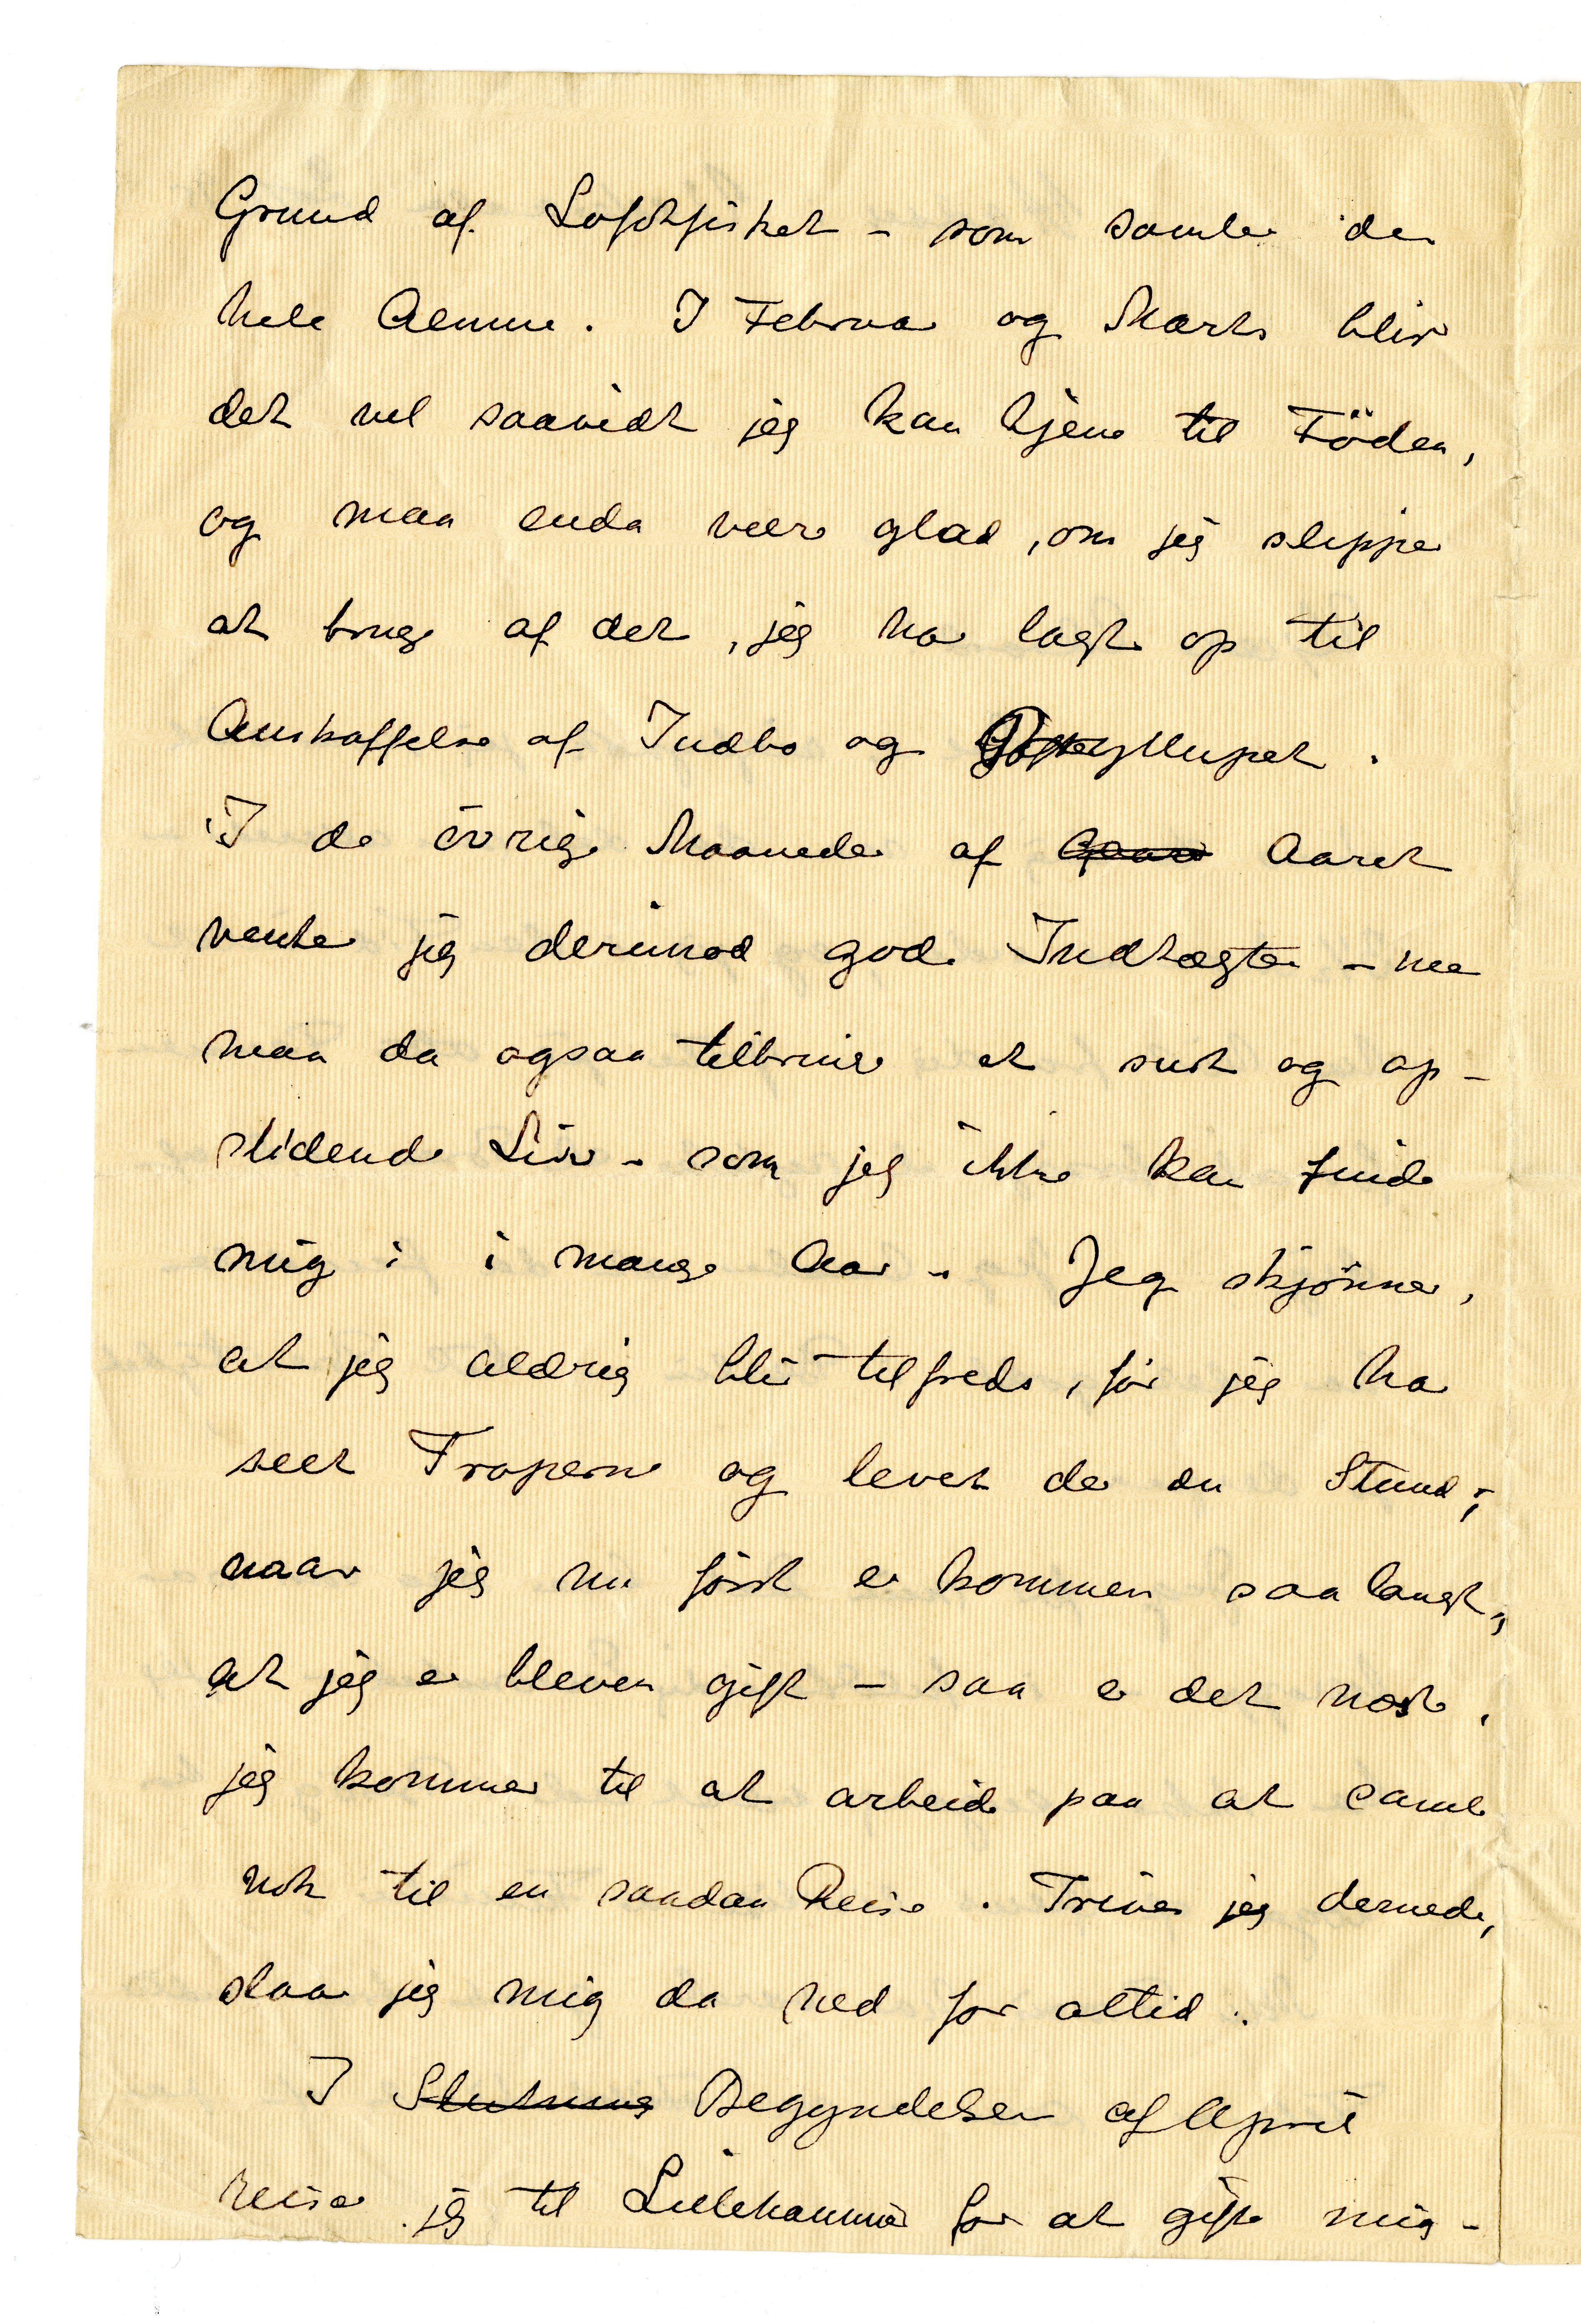 Grund af Lofotfisket – som samler den
hele Almue. I Februar og Marts bliver
det vel saavidt jeg kan tjene til Föden,
og maa enda være glad, om jeg slipper
at bruge af det, jeg har lagt op til
Anskaffelse af Indbo og Bryllupet.
I de övrige Maaneder af Aaret
venter jeg derimod gode Indtægter – men
maa da ogsaa tilbringe et surt og op-
slidende Liv – som jeg ikke kan finde
mig i i mange Aar – Jeg skjönner,
at jeg aldrig blir tilfreds, för jeg har
seet Troperne og levet der en Stund;
naar jeg nu först er kommen saa langt,
at jeg er bleven gift – saa er det næste,
jeg kommer til at arbeide paa at samle
nok til en saadan Reise. Trives jeg dernede,
slaar jeg mig da ned for altid.
I Slutning Begyndelsen af April
reiser jeg til Lillehammer for at gifte mig –